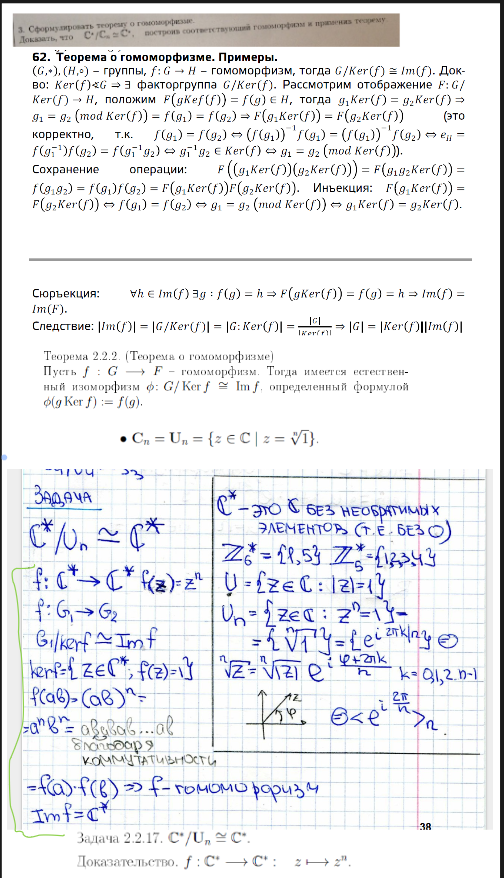 3. Сформулировать теорему о гомоморфизме.
Доказать, что ℂ*/Cₙ ≅ ℂ*, построив соответствующий гомоморфизм и применив теорему.
62. Теорема о гомоморфизме. Примеры.
(G,∗), (H,∘) – группы, f: G → H – гомоморфизм, тогда G/Ker(f) ≅ Im(f). Док-
во: Ker(f)⊲G ⇒ ∃ факторгруппа G/Ker(f). Рассмотрим отображение F: G/
Ker(f) → H, положим F(gKef(f)) = f(g) ∈ H, тогда g₁Ker(f) = g₂Ker(f) ⇒
g₁ = g₂ (mod Ker(f)) = f(g₁) = f(g₂) ⇒ F(g₁Ker(f)) = F(g₂Ker(f)) (это
корректно, т.к. f(g₁) = f(g₂) ⇔ (f(g₁))⁻¹f(g₁) = (f(g₁))⁻¹f(g₂) ⇔ e_H =
f(g₁⁻¹)f(g₂) = f(g₁⁻¹g₂) ⇔ g₁⁻¹g₂ ∈ Ker(f) ⇔ g₁ = g₂ (mod Ker(f))).
Сохранение операции: F((g₁Ker(f))(g₂Ker(f))) = F(g₁g₂Ker(f)) =
f(g₁g₂) = f(g₁)f(g₂) = F(g₁Ker(f))F(g₂Ker(f)). Инъекция: F(g₁Ker(f)) =
F(g₂Ker(f)) ⇔ f(g₁) = f(g₂) ⇔ g₁ = g₂ (mod Ker(f)) ⇔ g₁Ker(f) = g₂Ker(f).
Сюръекция: ∀h ∈ Im(f) ∃g : f(g) = h ⇒ F(gKer(f)) = f(g) = h ⇒ Im(f) =
Im(F).
Следствие: |Im(f)| = |G/Ker(f)| = |G: Ker(f)| = |G|/|Ker(f)| ⇒ |G| = |Ker(f)||Im(f)|
Теорема 2.2.2. (Теорема о гомоморфизме)
Пусть f : G ⟶ F – гомоморфизм. Тогда имеется естествен-
ный изоморфизм ϕ: G/ Ker f ≅ Im f, определенный формулой
ϕ(g Ker f) := f(g).
• Cₙ = Uₙ = {z ∈ ℂ | z = ⁿ√1}.
ЗАДАЧА
ℂ*/Uₙ ≅ ℂ*
f: ℂ* → ℂ* f(z)=zⁿ
f: G₁→G₂
G₁/kerf ≅ Imf
kerf={z∈ℂ*, f(z)=1}
f(ab)=(ab)ⁿ=
=aⁿbⁿ= ававав...ав
благодаря
коммутативности
=f(a)·f(b) ⇒ f-гомоморфизм
Imf=ℂ*
ℂ* - ЭТО ℂ БЕЗ НЕОБРАТИМЫХ
ЭЛЕМЕНТОВ (Т.Е. БЕЗ 0)
ℤ₆*={1,5} ℤ₅*={1,2,3,4}
U={z∈ℂ: |z|=1}
Uₙ={z∈ℂ: zⁿ=1}=
={ⁿ√1}={e^(i 2πk/n)} ⊜
ⁿ√z=ⁿ√|z| e^(i (φ+2πk)/n) k=0,1,2..n-1
z
φ
⊜<e^(i 2π/n)>ₙ.
38
Задача 2.2.17. ℂ*/Uₙ ≅ ℂ*.
Доказательство. f : ℂ* ⟶ ℂ* : z ⟼ zⁿ.